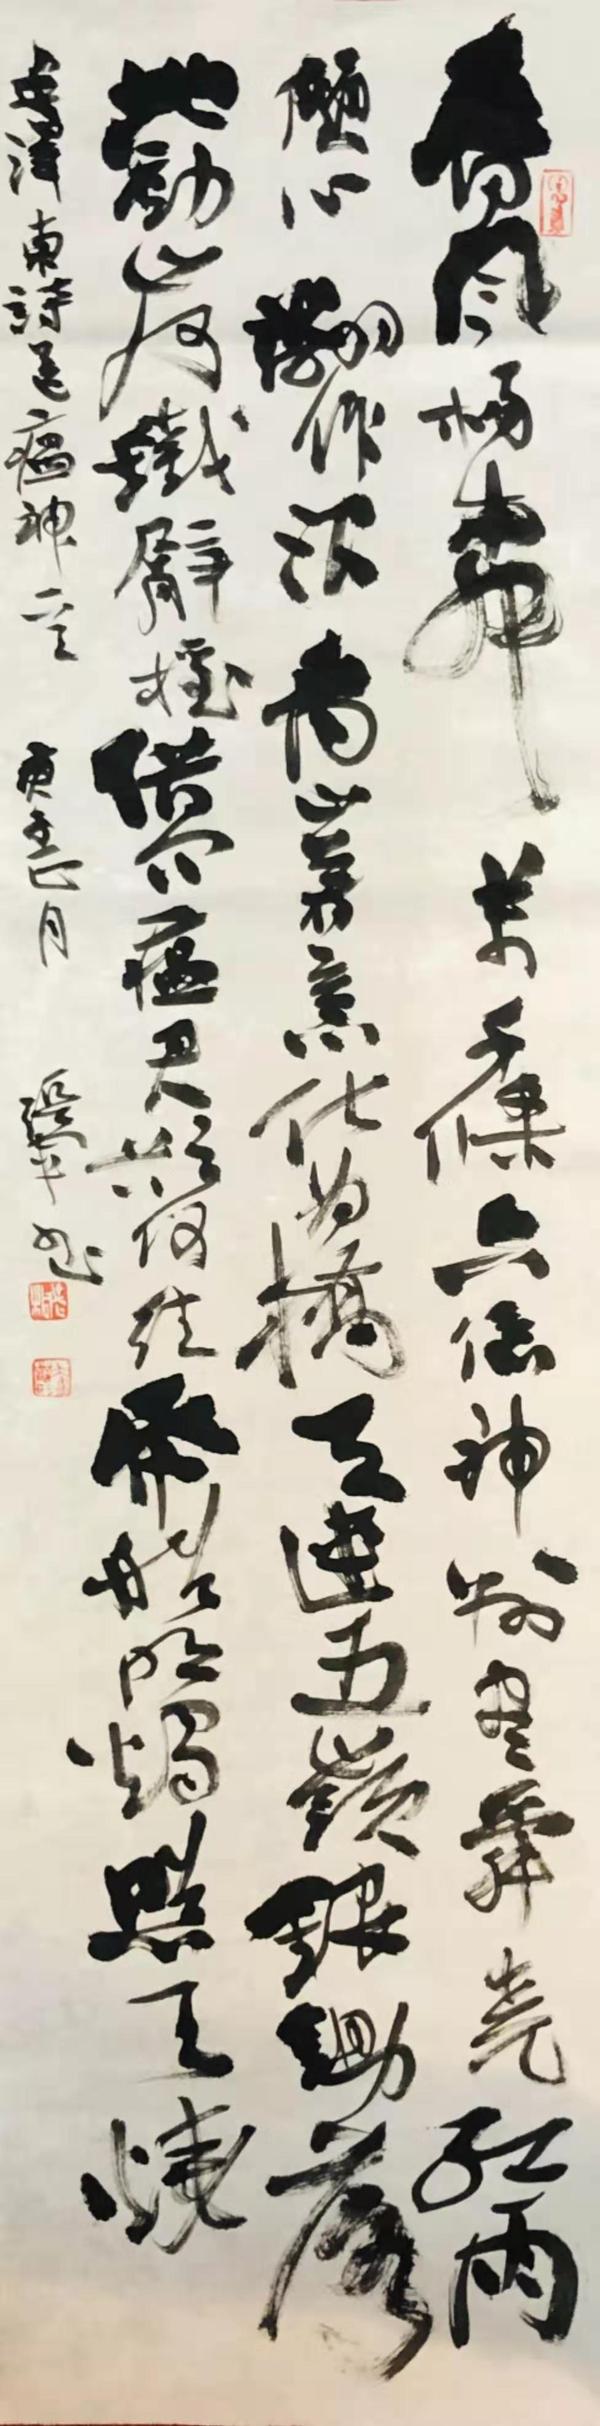 春風楊柳萬千條六億神州盡舜堯紅雨
隨心翻作浪青山著意化為橋天連五嶺銀鋤落
地動山河鐵臂搖借問瘟君欲何往紙船明燭照天燒
毛澤東詩送瘟神 庚子正月 書